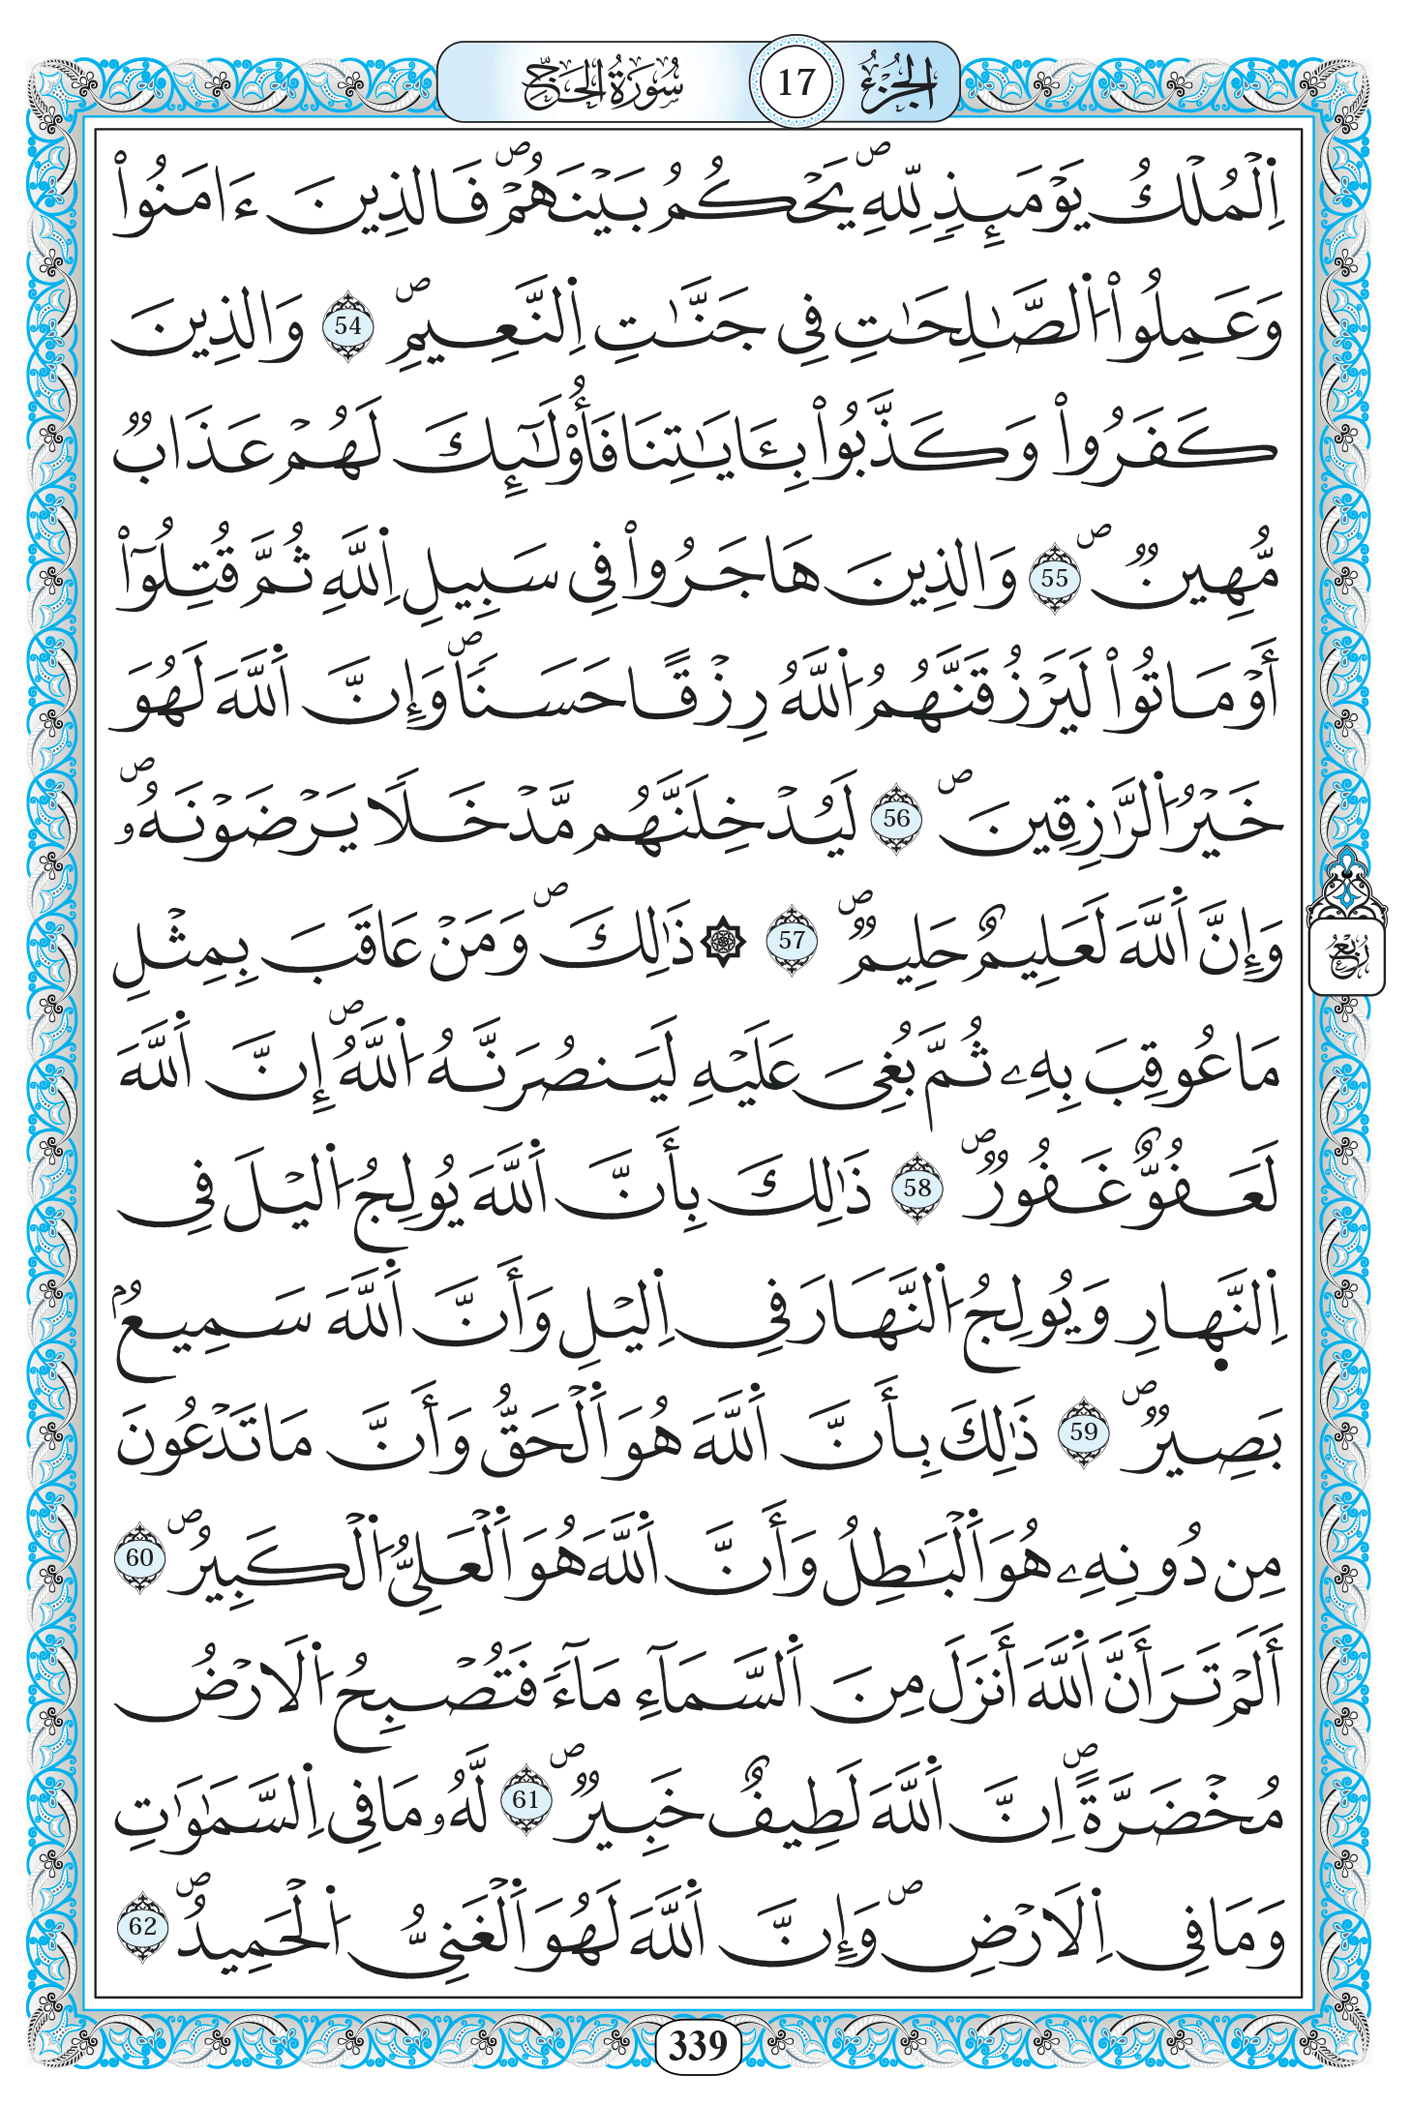 الجزء 17 سورة الحج
اِ۬لْمُلْكُ يَوْمَئِذٍ لِّلهِۖ يَحْكُمُ بَيْنَهُمْۖ فَالذِينَ ءَامَنُواْ
وَعَمِلُواْ اُ۬لصَّٰلِحَٰتِ فِے جَنَّٰتِ اِ۬لنَّعِيمِۖ 54 وَالذِينَ
كَفَرُواْ وَكَذَّبُواْ بِـَٔايَٰتِنَا فَأُوْلَٰٓئِكَ لَهُمْ عَذَابٞ
مُّهِينٞۖ 55 وَالذِينَ هَاجَرُواْ فِے سَبِيلِ اِ۬للَّهِ ثُمَّ قُتِلُوٓاْ
أَوْ مَاتُواْ لَيَرْزُقَنَّهُمُ اُ۬للَّهُ رِزْقاً حَسَناٗۖ وَإِنَّ اَ۬للَّهَ لَهُوَ
خَيْرُ اُ۬لرَّٰزِقِينَۖ 56 لَيُدْخِلَنَّهُم مَّدْخَلاٗ يَرْضَوْنَهُۥۖ
وَإِنَّ اَ۬للَّهَ لَعَلِيمٌ حَلِيمٞۖ 57 ۞ ذَٰلِكَۖ وَمَنْ عَاقَبَ بِمِثْلِ
مَا عُوقِبَ بِهِۦ ثُمَّ بُغِيَ عَلَيْهِ لَيَنصُرَنَّهُ اُ۬للَّهُۖ إِنَّ اَ۬للَّهَ
لَعَفُوٌّ غَفُورٞۖ 58 ذَٰلِكَ بِأَنَّ اَ۬للَّهَ يُولِجُ اُ۬ليْلَ فِے
اِ۬لنَّهارِ وَيُولِجُ اُ۬لنَّهَارَ فِے اِ۬ليْلِ وَأَنَّ اَ۬للَّهَ سَمِيعُۢ
بَصِيرٞۖ 59 ذَٰلِكَ بِأَنَّ اَ۬للَّهَ هُوَ اَ۬لْحَقُّ وَأَنَّ مَا تَدْعُونَ
مِن دُونِهِۦ هُوَ اَ۬لْبَٰطِلُ وَأَنَّ اَ۬للَّهَ هُوَ اَ۬لْعَلِيُّ اُ۬لْكَبِيرُۖ 60
أَلَمْ تَرَ أَنَّ اَ۬للَّهَ أَنزَلَ مِنَ اَ۬لسَّمَآءِ مَآءٗ فَتُصْبِحُ اُ۬لَارْضُ
مُخْضَرَّةًۖ اِنَّ اَ۬للَّهَ لَطِيفٌ خَبِيرٞۖ 61 لَّهُۥ مَا فِے اِ۬لسَّمَٰوَٰتِ
وَمَا فِے اِ۬لَارْضِۖ وَإِنَّ اَ۬للَّهَ لَهُوَ اَ۬لْغَنِيُّ اُ۬لْحَمِيدُۖ 62
ربع
339